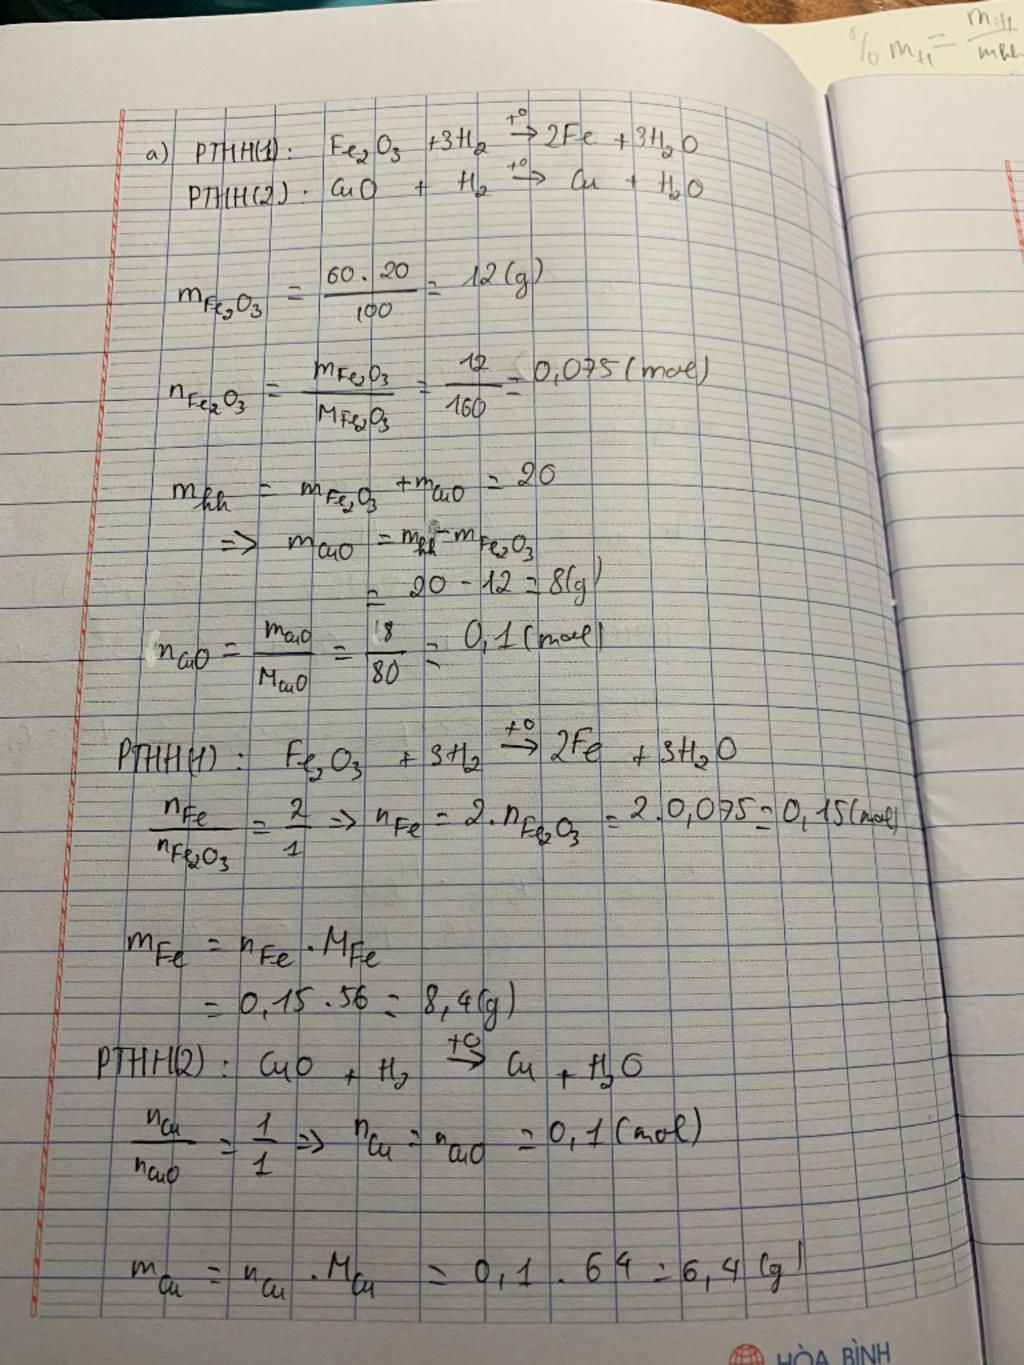 % m_H = m_H / m_hh
a) PTHH(1): Fe₂O₃ +3H₂ →(t⁰) 2Fe +3H₂O
PTHH(2): CuO + H₂ →(t⁰) Cu + H₂O
m_Fe₂O₃ = 60.20 / 100 = 12(g)
n_Fe₂O₃ = m_Fe₂O₃ / M_Fe₂O₃ = 12 / 160 = 0,075 (mol)
m_hh = m_Fe₂O₃ + m_CuO = 20
=> m_CuO = m_hh - m_Fe₂O₃
= 20 - 12 = 8(g)
n_CuO = m_CuO / M_CuO = 8 / 80 = 0,1 (mol)
PTHH(1): Fe₂O₃ + 3H₂ →(t⁰) 2Fe + 3H₂O
n_Fe / n_Fe₂O₃ = 2 / 1 => n_Fe = 2.n_Fe₂O₃ = 2.0,075 = 0,15 (mol)
m_Fe = n_Fe . M_Fe
= 0,15.56 = 8,4(g)
PTHH(2): CuO + H₂ →(t⁰) Cu + H₂O
n_Cu / n_CuO = 1 / 1 => n_Cu = n_CuO = 0,1 (mol)
m_Cu = n_Cu . M_Cu = 0,1 . 64 = 6,4 (g)
HÒA BÌNH